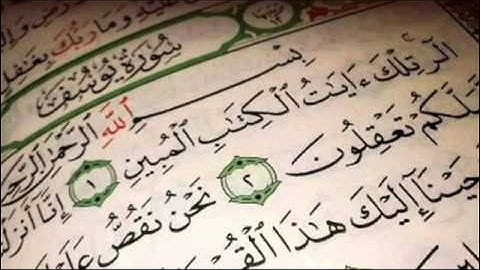 عَلَيْهِ وَمَا رَبُّكَ بِغَٰفِلٍ
سُورَةُ يُوسُفَ
بِسْمِ ٱللَّهِ ٱلرَّحْمَٰنِ ٱلرَّحِيمِ
الٓر تِلْكَ ءَايَٰتُ ٱلْكِتَٰبِ ٱلْمُبِينِ ١ إِنَّآ أَنزَلْ
لَّكُمْ تَعْقِلُونَ ٢ نَحْنُ نَقُصُّ عَلَ
حَيْنَآ إِلَيْكَ هَٰذَا ٱلْقُرْ